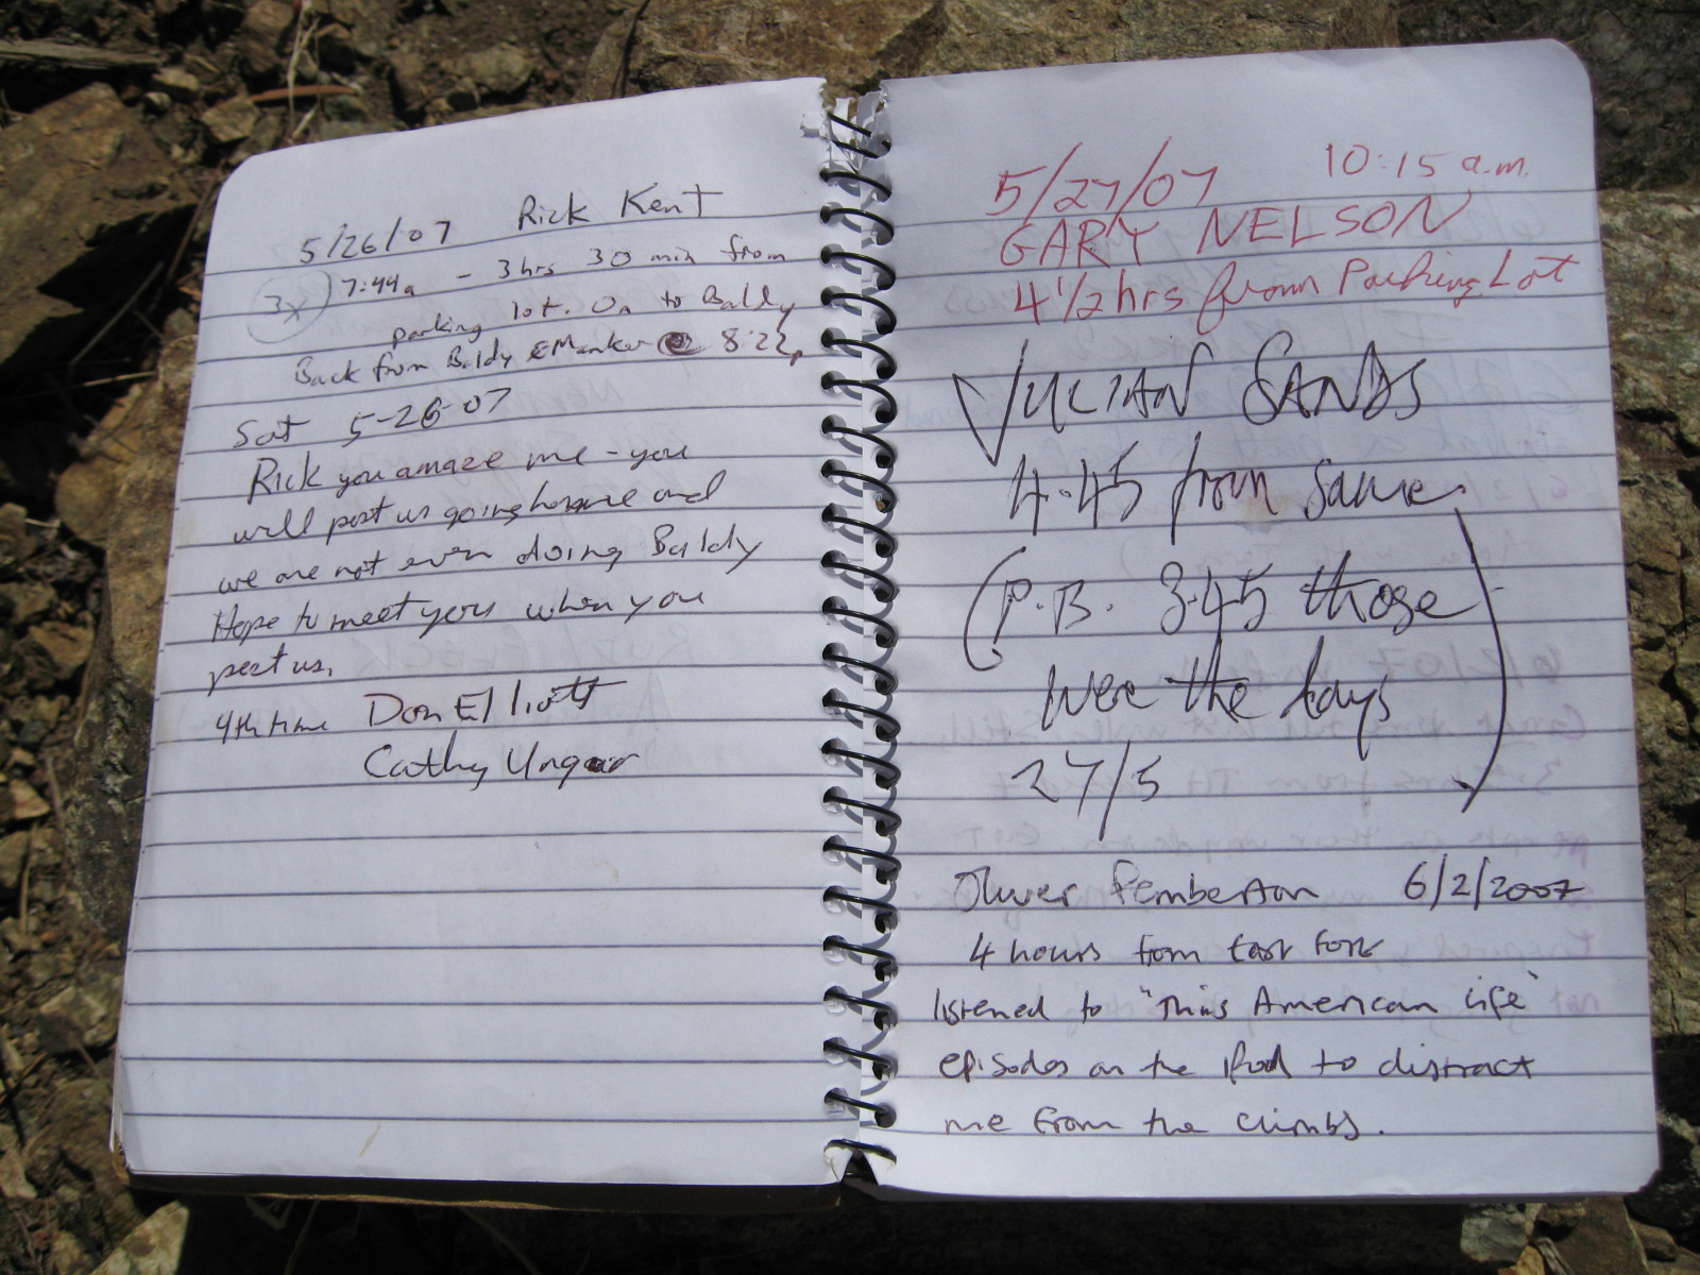 5/26/07 Rick Kent
3x 7:44a - 3 hrs 30 min from
parking lot. On to Baldy
Back from Baldy & Manker @ 8:22p
Sat 5-26-07
Rick you amaze me - you
will past us going home and
we are not even doing Baldy
Hope to meet you when you
past us.
4th time Don Elliott
Cathy Ungar
5/27/07 10:15 a.m.
GARY NELSON
4 1/2 hrs from Parking Lot
JULIAN SANDS
4.45 from same.
(P.B. 3.45 those
were the days)
27/5
Oliver Pemberton 6/2/2007
4 hours from East Fork
listened to "This American Life"
episodes on the iPod to distract
me from the climbs.